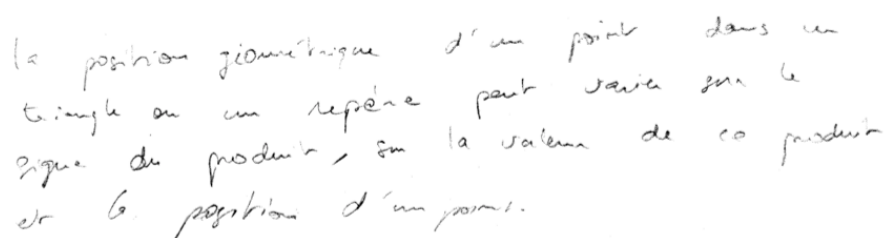 la position géométrique d'un point dans un
triangle ou un repère peut varier sur le
signe du produit, sur la valeur de ce produit
et la position d'un point.